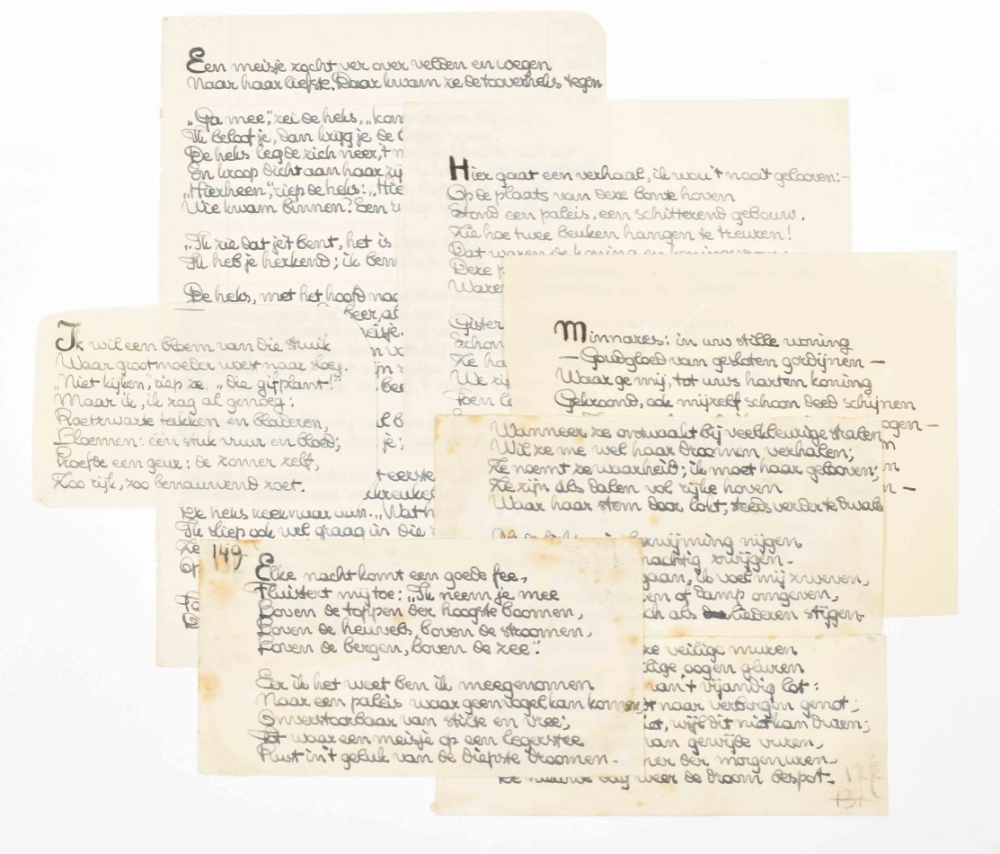 Een meisje zocht ver over velden en wegen
Naar haar liefste. Daar kwam ze de tooverheks tegen
„Ga mee,” zei de heks, „kom
Ik beloof je, dan krijg je de
De heks legde zich neer, 't m
En kroop dicht aan haar zij
„Hierheen”, riep de heks: „Hie
Wie kwam binnen? Een
„Ik zie dat jij 't bent, het is
Ik heb je herkend; ik ben
De heks, met het hoofd naar
De heks keek naar „Wat h
Ik sliep ook wel graag in die
Hier gaat een verhaal, ik wou 't nooit gelooven:-
Op de plaats van deze bonte hoven
Stond een paleis, een schitterend gebouw.
Zie hoe twee beuken hangen te treuren!
Dat waren de koning en
Deze
Waren
Gister
Schoon
Ze ha
We zij
Toen
Minnares: in uws stille woning
— Goudgloed van gesloten gordijnen —
Waar ge mij, tot uws harten koning
Gekroond, ook mijzelf schoon deed schijnen
ogen —
Ik wil een bloem van die struik
Waar grootmoeder woest naar sloeg.
„Niet kijken, riep ze, „die gifplant!”
Maar ik, ik zag al genoeg:
Roetzwarte takken en bladeren,
Bloemen: één stuk vuur en bloed;
Proefde een geur: de zomer zelf,
Zoo rijk, zoo benauwend zoet.
Wanneer ze ontwaakt bij veelkleurige stralen
Wil ze me wel haar droomen verhalen;
Ze noemt ze waarheid; ik moet haar gelooven;
Ze zijn als dalen vol rijke hoven
Waar haar stem door lokt, steeds verder te dwalen
zwijming nijgen
machtig zwijgen.
gaan, ik voel mij zweven,
en of damp omgeven,
als liederen stijgen
149
Elke nacht komt een goede fee,
Fluistert mij toe: „Ik neem je mee
Boven de toppen der hoogste boomen,
Boven de heuvels, boven de stroomen,
Boven de bergen, boven de zee”.
Eer ik het weet ben ik meegenomen
Naar een paleis waar geen vogel kan komen
Onverstoorbaar van stilte en vree;
Tot waar een meisje op een legerstee
Rust in 't geluk van de diepste droomen.
veilige muren
oogen gluren
van 't vijandig lot:
naar verborgen genot;
wijl dit niet kan duren;
van gewijde vuren,
der morgenuren
De nieuwe dag weer de droom bespot.
131